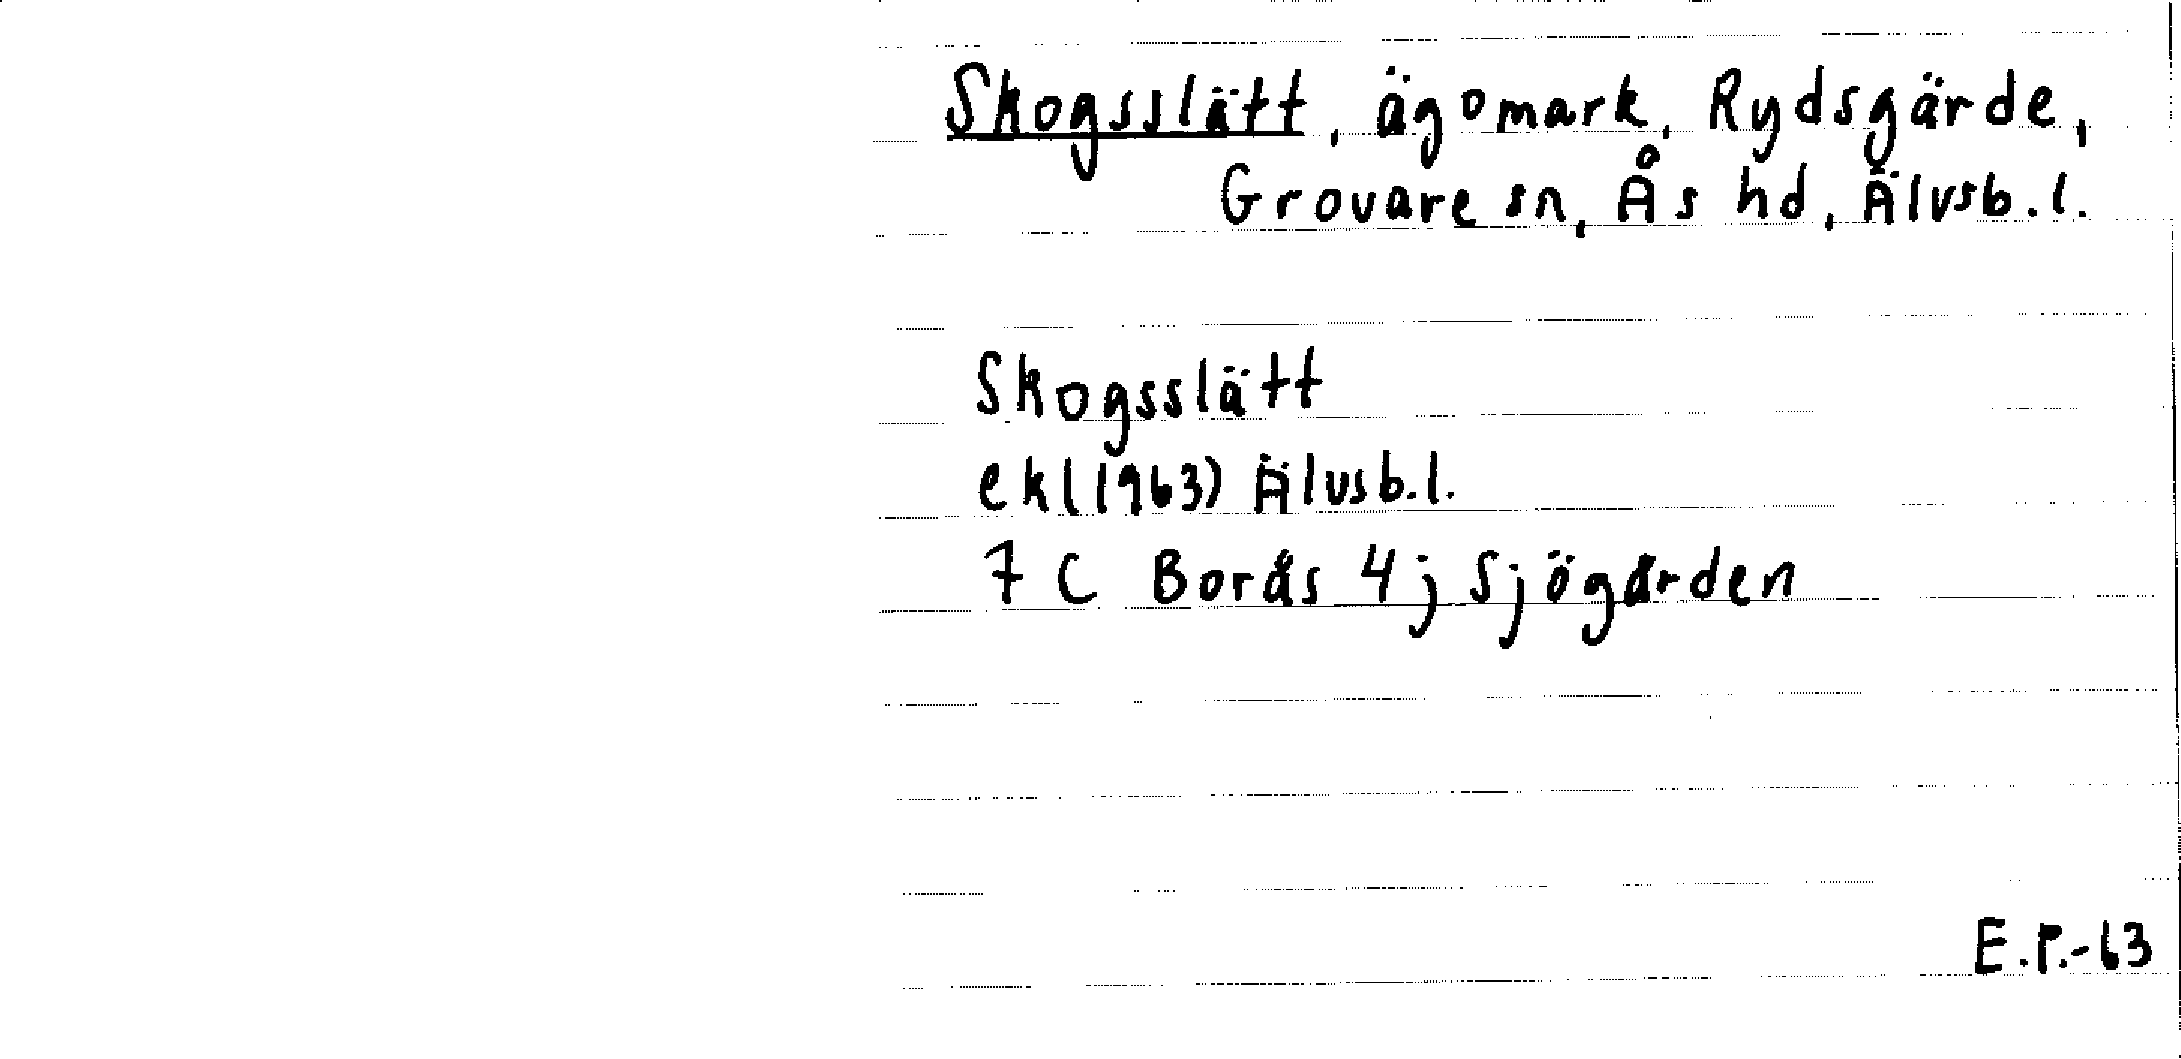 Skogsslätt, ägomark, Rydsgärde,
Grovare sn, Ås hd, Älvsb.l.
Skogsslätt
ekl(1963) Älvsb.l.
7 C Borås 4j Sjögården
E.P.-63